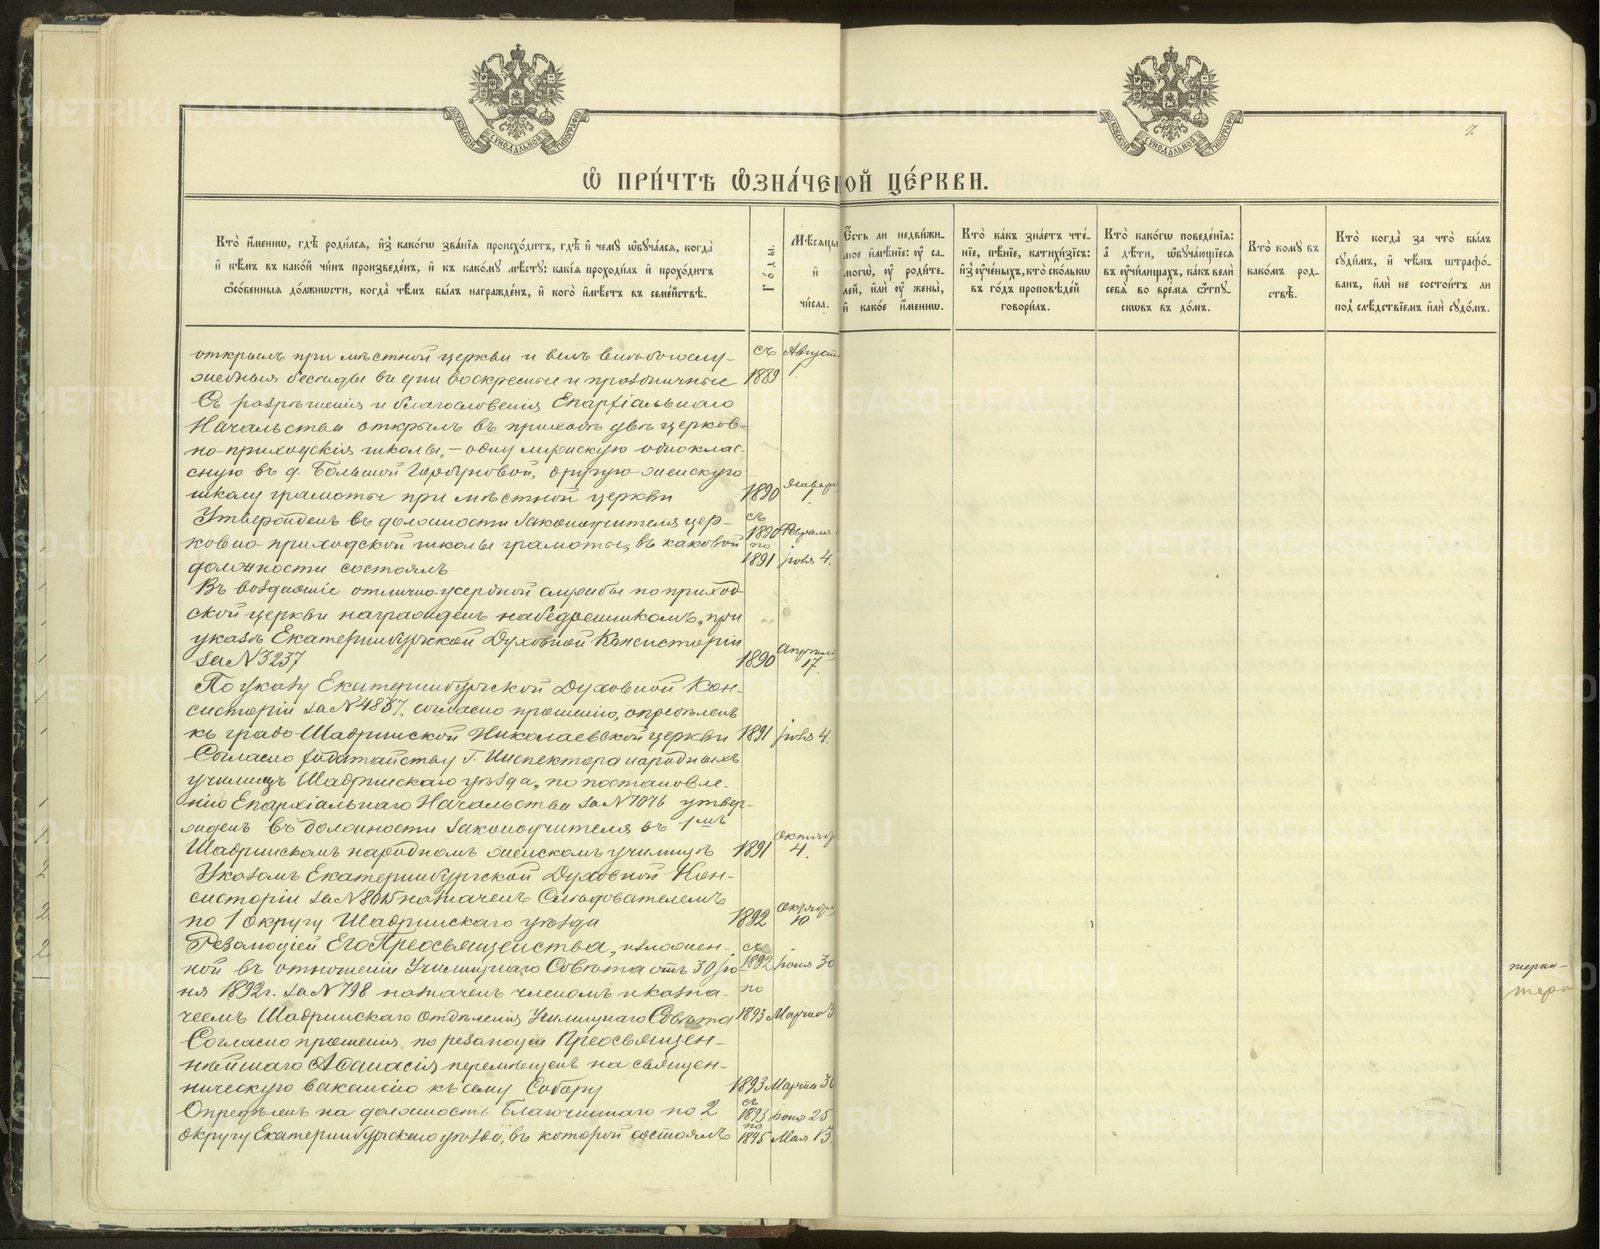 МОСКОВСКОЙ СѴНОДАЛЬНОЙ ТИПОГРАФІИ
МОСКОВСКОЙ СѴНОДАЛЬНОЙ ТИПОГРАФІИ
7.
Ѡ ПРИ́ЧТѢ ѠЗНА́ЧЕНОЙ ЦЕ́РКВИ.
Кто̀ и҆́меннѡ, гдѣ̀ роди́лсѧ, и҆з̾ како́гѡ зва́нїѧ происхо́дитъ, гдѣ̀ и҆ чемꙋ̀ ѡ҆бꙋча́лсѧ, когда̀
и҆ кѣ́мъ въ како́й чи́нъ произведе́нъ, и҆ къ како́мꙋ мѣ́стꙋ: какі̑ѧ проходи́лъ и҆ прохо́дитъ
ѻ҆со́бенныѧ до́лжности, когда̀ чѣ́мъ бы́лъ награжде́нъ, и҆ кого̀ и҆мѣ́етъ въ семе́йствѣ.
Го́ды.
Мѣ́сѧцы
и҆
чи́сла.
Є҆́сть ли недви́жи-
мое и҆мѣ́нїе: ᲂу҆ са-
могѡ̀, ᲂу҆ роди́те-
лей, и҆лѝ ᲂу҆ жены̀,
и҆ како́е и҆́меннѡ.
Кто̀ ка́къ зна́етъ чте́-
нїе, пѣ́нїе, катихи́зїсъ:
и҆з̾ ᲂу҆че́ныхъ, кто̀ ско́лькѡ
въ го́дъ проповѣ́дей
говори́лъ.
Кто̀ како́гѡ поведе́нїѧ:
а҆ дѣ́ти, ѡ҆бꙋча́ющїесѧ
въ ᲂу҆чи́лищахъ, ка́къ велѝ
себѧ̀ во вре́мѧ ѿпꙋ-
сковъ въ до́мъ.
Кто̀ комꙋ̀ въ
како́мъ род-
ствѣ̀.
Кто̀ когда̀ за что̀ бы́лъ
сꙋди́мъ, и҆ чѣ́мъ штрафо́-
ванъ, и҆лѝ не состои́тъ ли
под̾ слѣ́дствїемъ и҆лѝ сꙋдо́мъ.
открылъ при мѣстной церкви и велъ внѣбогослу- съ Август
жебныя бесѣды въ дни воскресные и праздничные 1889 1.
Съ разрѣшенія и благословенія Епархіальнаго
Начальства открылъ въ приходѣ двѣ церков-
но-приходскія школы, – одну мужскую одноклас-
сную въ д. Большой Горбуновой, другую женскую
школу грамоты при мѣстной церкви 1890 Января 1.
Утвержденъ въ должности законоучителя цер- съ
ковно-приходской школы грамоты, въ каковой 1890 Февраля по
должности состоялъ 1891 Іюля 4.
Въ воздаяніе отлично-усердной службы по приход-
ской церкви награжденъ набедренникомъ, при
указѣ Екатеринбургской Духовной Консисторіи
за № 3237 1890 Апрѣля 17.
По указу Екатеринбургской Духовной Кон-
систоріи за № 4857, согласно прошенію, опредѣленъ
къ градо-Шадринской Николаевской церкви 1891 Іюля 4.
Согласно ходатайству Г. Инспектора народныхъ
училищъ Шадринскаго уѣзда, по постановле-
нію Епархіальнаго Начальства за № 7076 утвер-
жденъ въ должности законоучителя въ 1мъ
Шадринскомъ народномъ женскомъ училищѣ 1891 Октябр 4.
Указомъ Екатеринбургской Духовной Кон-
систоріи за № 8015 назначенъ Слѣдователемъ
по 1 округу Шадринскаго уѣзда 1892 Октября 10
Резолюціей Его Преосвященства, изложен- съ
ной въ отношеніи Училищнаго Совѣта отъ 30 Ію- 1892 Іюня 30
ня 1892 г. за № 798 назначенъ членомъ и казна- по
чеемъ Шадринскаго Отдѣленія Училищнаго Совѣта 1893 Марта 3
Согласно прошенія, по резолюціи Преосвящен-
нѣйшаго Аѳанасія перемѣщенъ на священ-
ническую вакансію къ сему Собору 1893 Марта 30
Опредѣленъ на должность Благочиннаго по 2 съ 1893 Іюня 25
округу Екатеринбургскаго уѣзда, въ которой состоялъ по 1895 Мая 13.